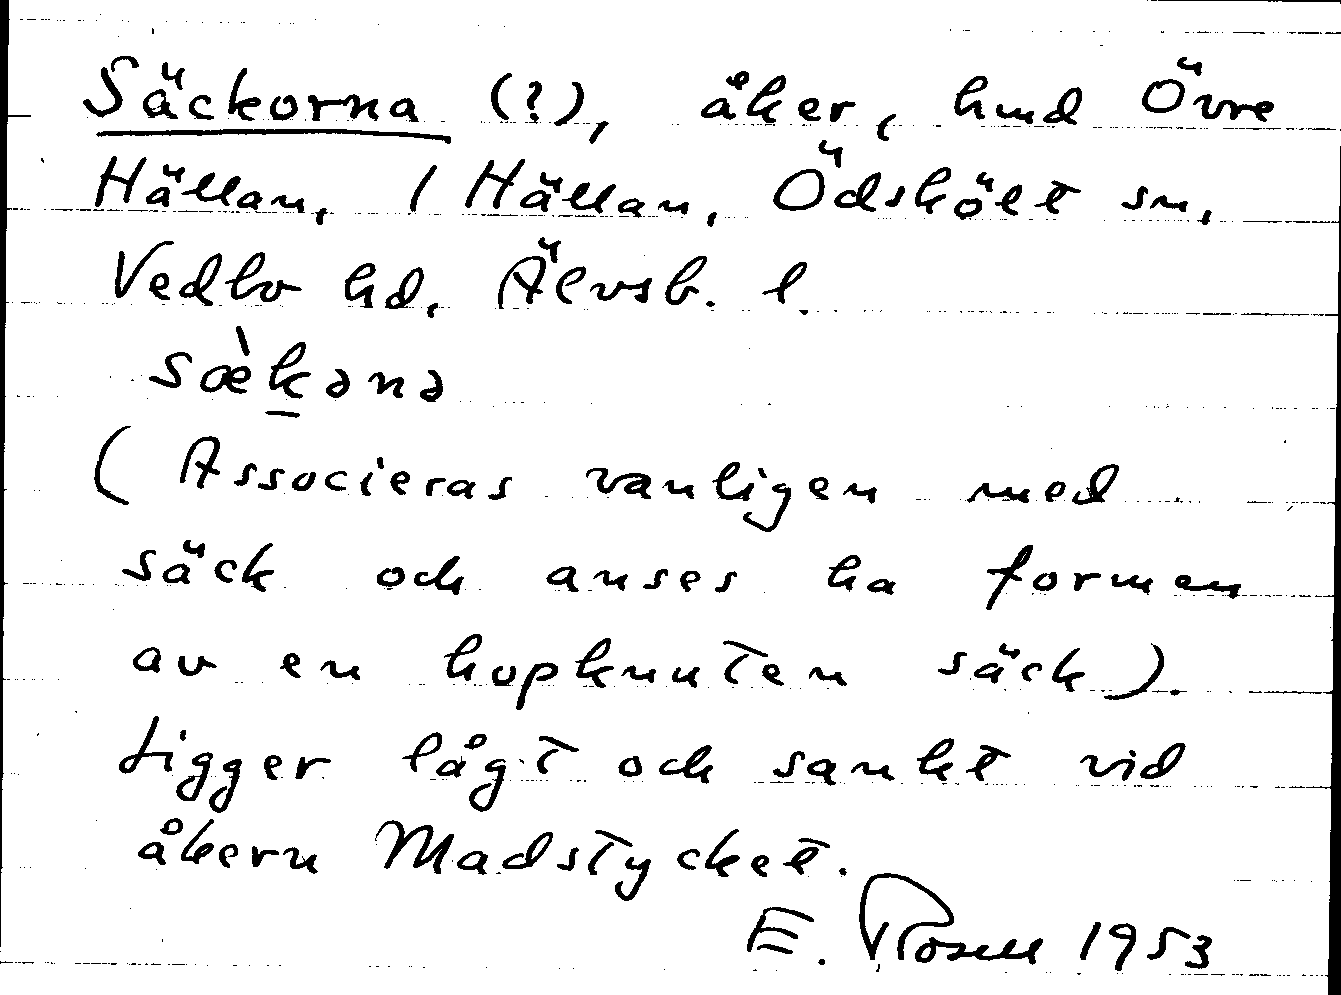 Säckorna (?), åker, hmd Övre
Hällan, 1 Hällan, Ödskölt sn,
Vedbo hd, Älvsb. l.
sæ̀kənə
(Associeras vanligen med
säck och anses ha formen
av en hopknuten säck).
Ligger lågt och sankt vid
åkern Madstycket.
E. Rosell 1953